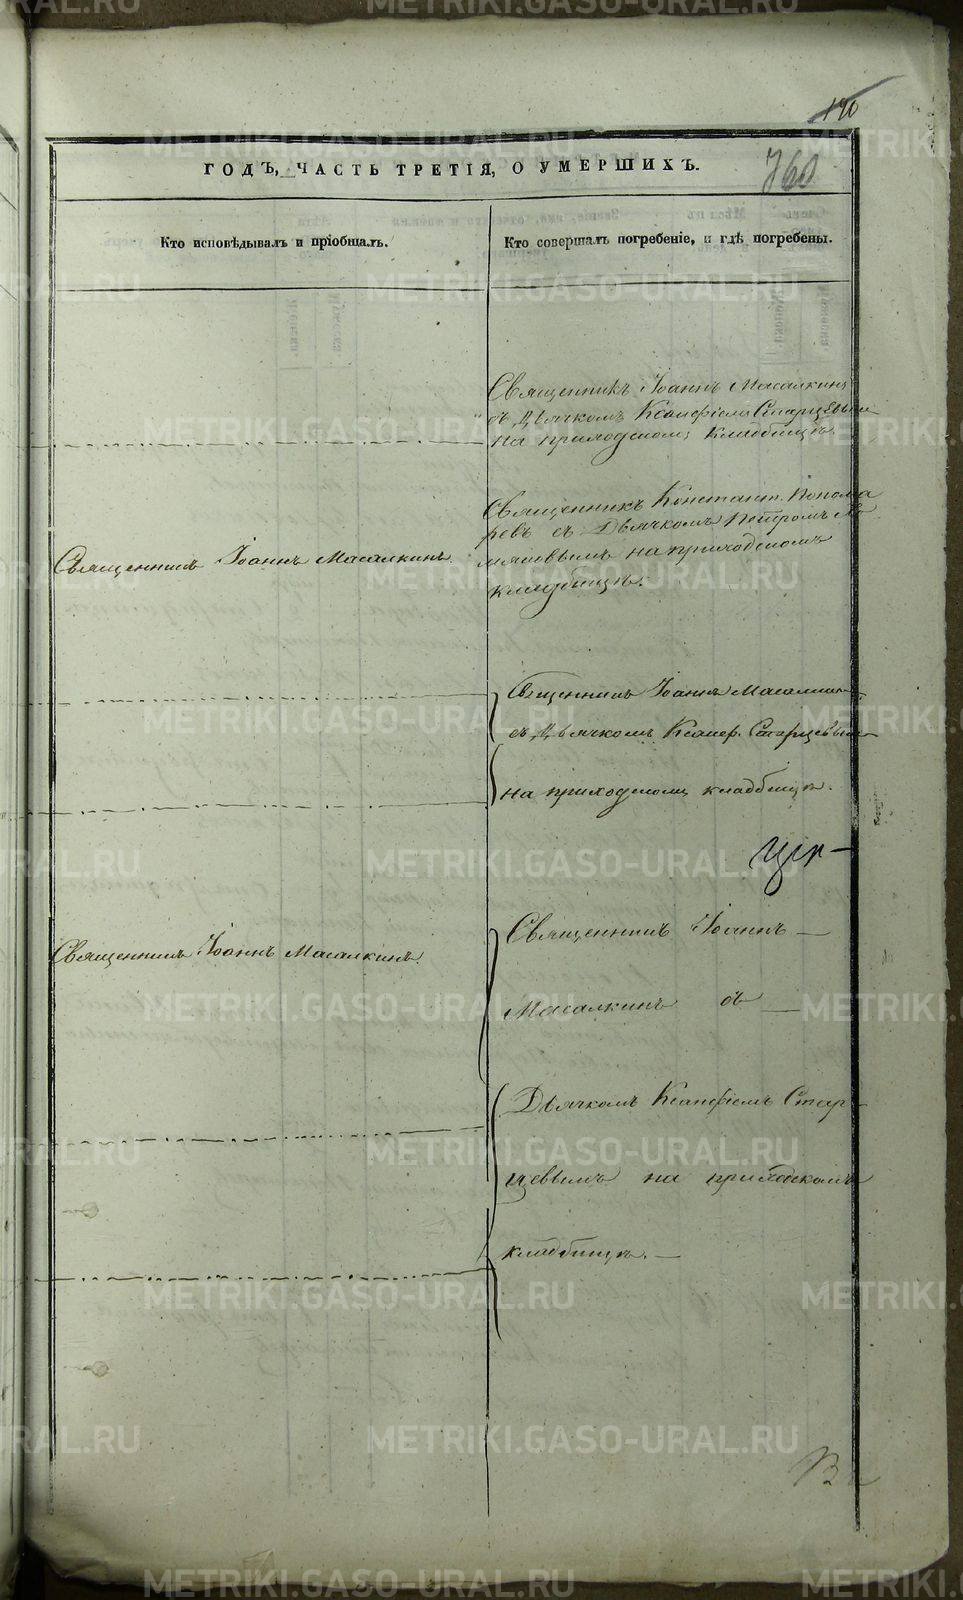 190
760
ГОДЪ, ЧАСТЬ ТРЕТІЯ, О УМЕРШИХЪ.
Кто исповѣдывалъ и пріобщалъ.
Кто совершалъ погребеніе, и гдѣ погребены.
Священникъ Іоаннъ Масалкинъ
съ Дьячкомъ Ксанфіемъ Старцевым
на приходскомъ кладбищѣ
Священникъ Констант. Понома
ревъ съ Дьячкомъ Петромъ
на приходскомъ
кладбищѣ.
Священникъ Іоаннъ Масалкинъ.
Священникъ Іоаннъ Масалкин
съ Дьячкомъ Ксанф. Старцевым
на приходскомъ кладбищѣ.
Священникъ Іоаннъ Масалкинъ.
Священникъ Іоаннъ —
Масалкинъ съ —
Дьячкомъ Ксанфіемъ Стар
цевымъ на приходскомъ
кладбищѣ. —
METRIKI.GASO-URAL.RU